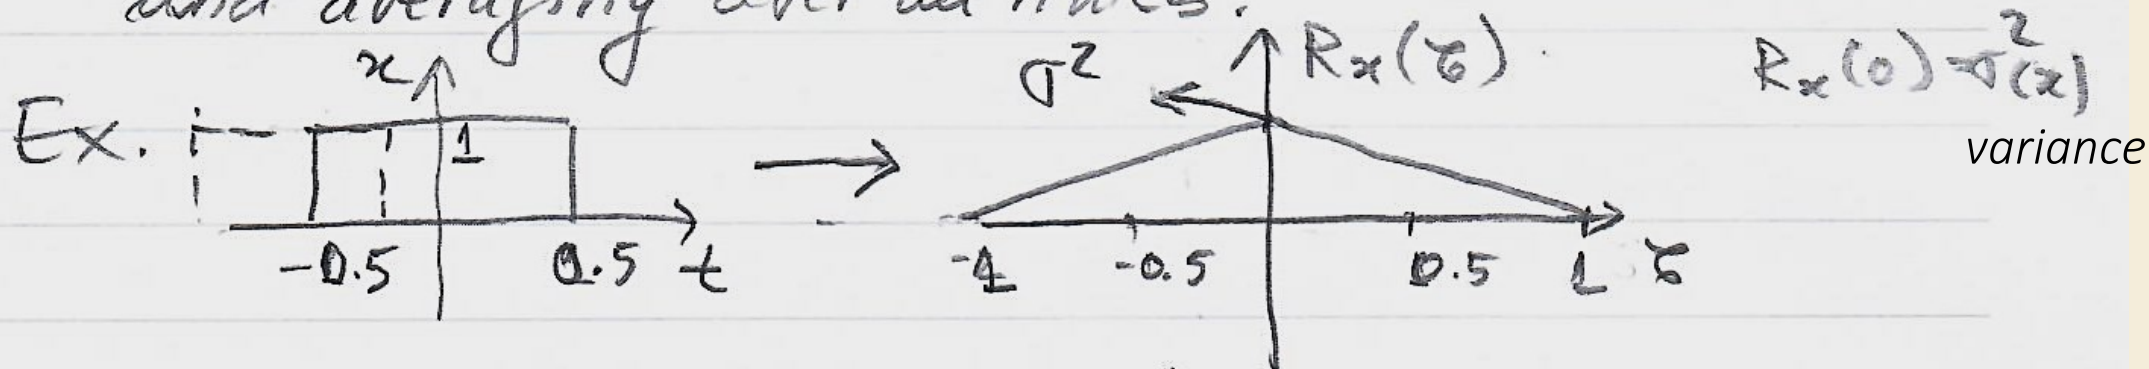 and averaging over all times.
Ex. x 1 -0.5 0.5 t
σ² Rx(τ) -1 -0.5 0.5 1 τ
Rx(0)=σ²(x)
variance